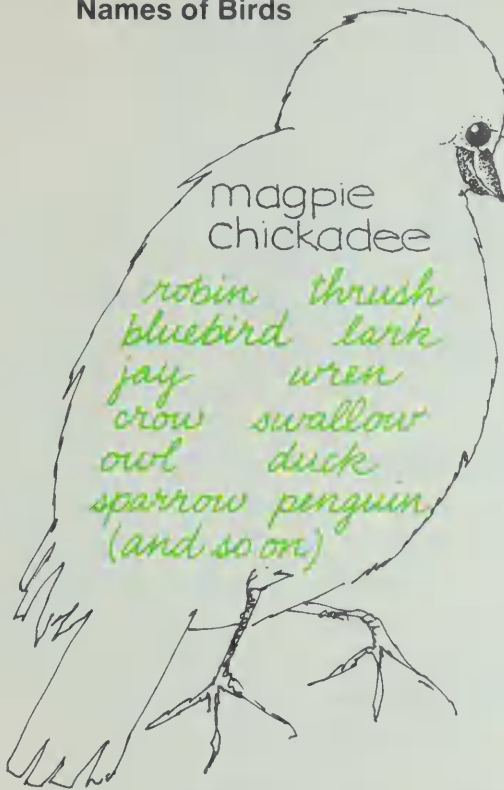 Names of Birds
magpie
Chickadee
robin thrush
bluebird lark
jay wren
crow swallow
owl duck
sparrow penguin
(and so on)